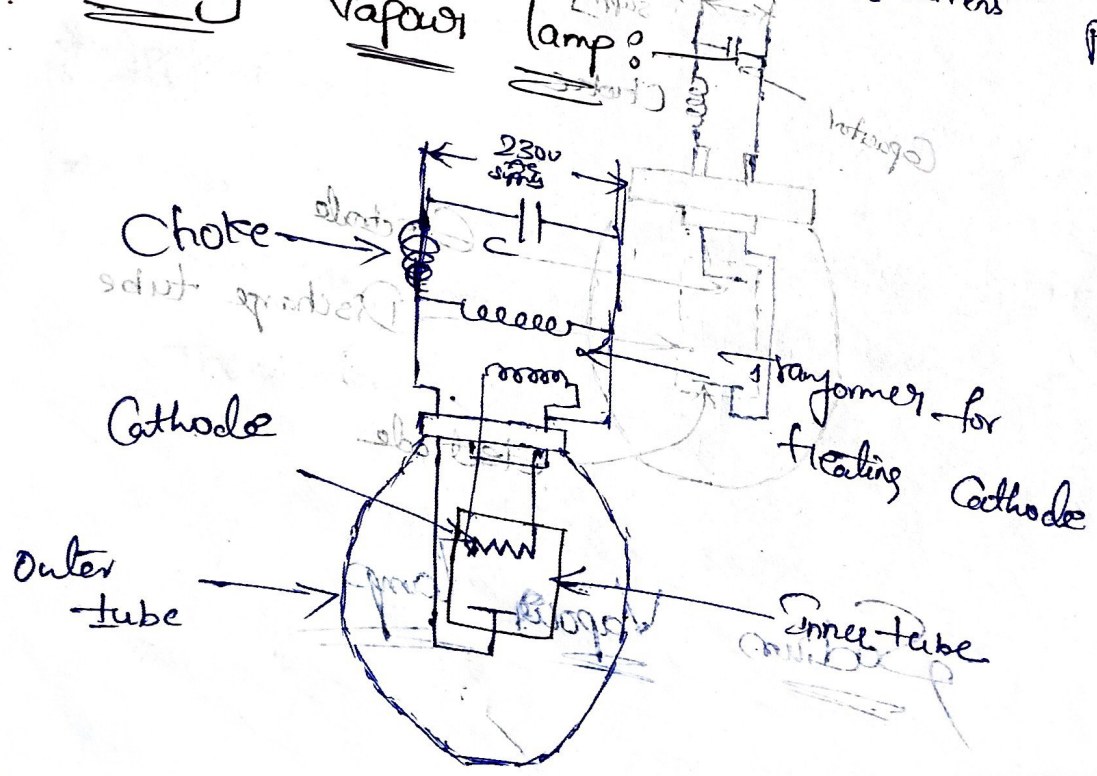 Vapour lamp:
230V
AC
supply
Choke
C
Transformer for
Heating Cathode
Cathode
Outer
tube
Inner tube